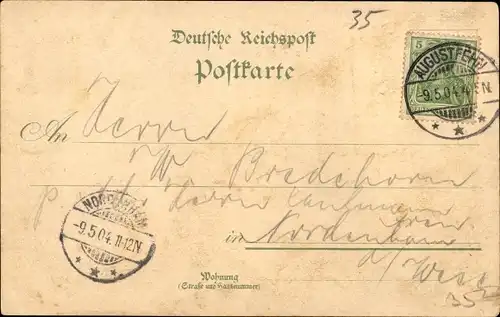 35
Deutsche Reichspost
Postkarte
5
AUGUSTFEHN
-9.5.04.
An Herrn
W Bredehorn
p. Herrn Kaufmann
NORDENHAM
-9.5.04.11-12N
in Nordenham
a/Weser
Wohnung
(Straße und Hausnummer)
35